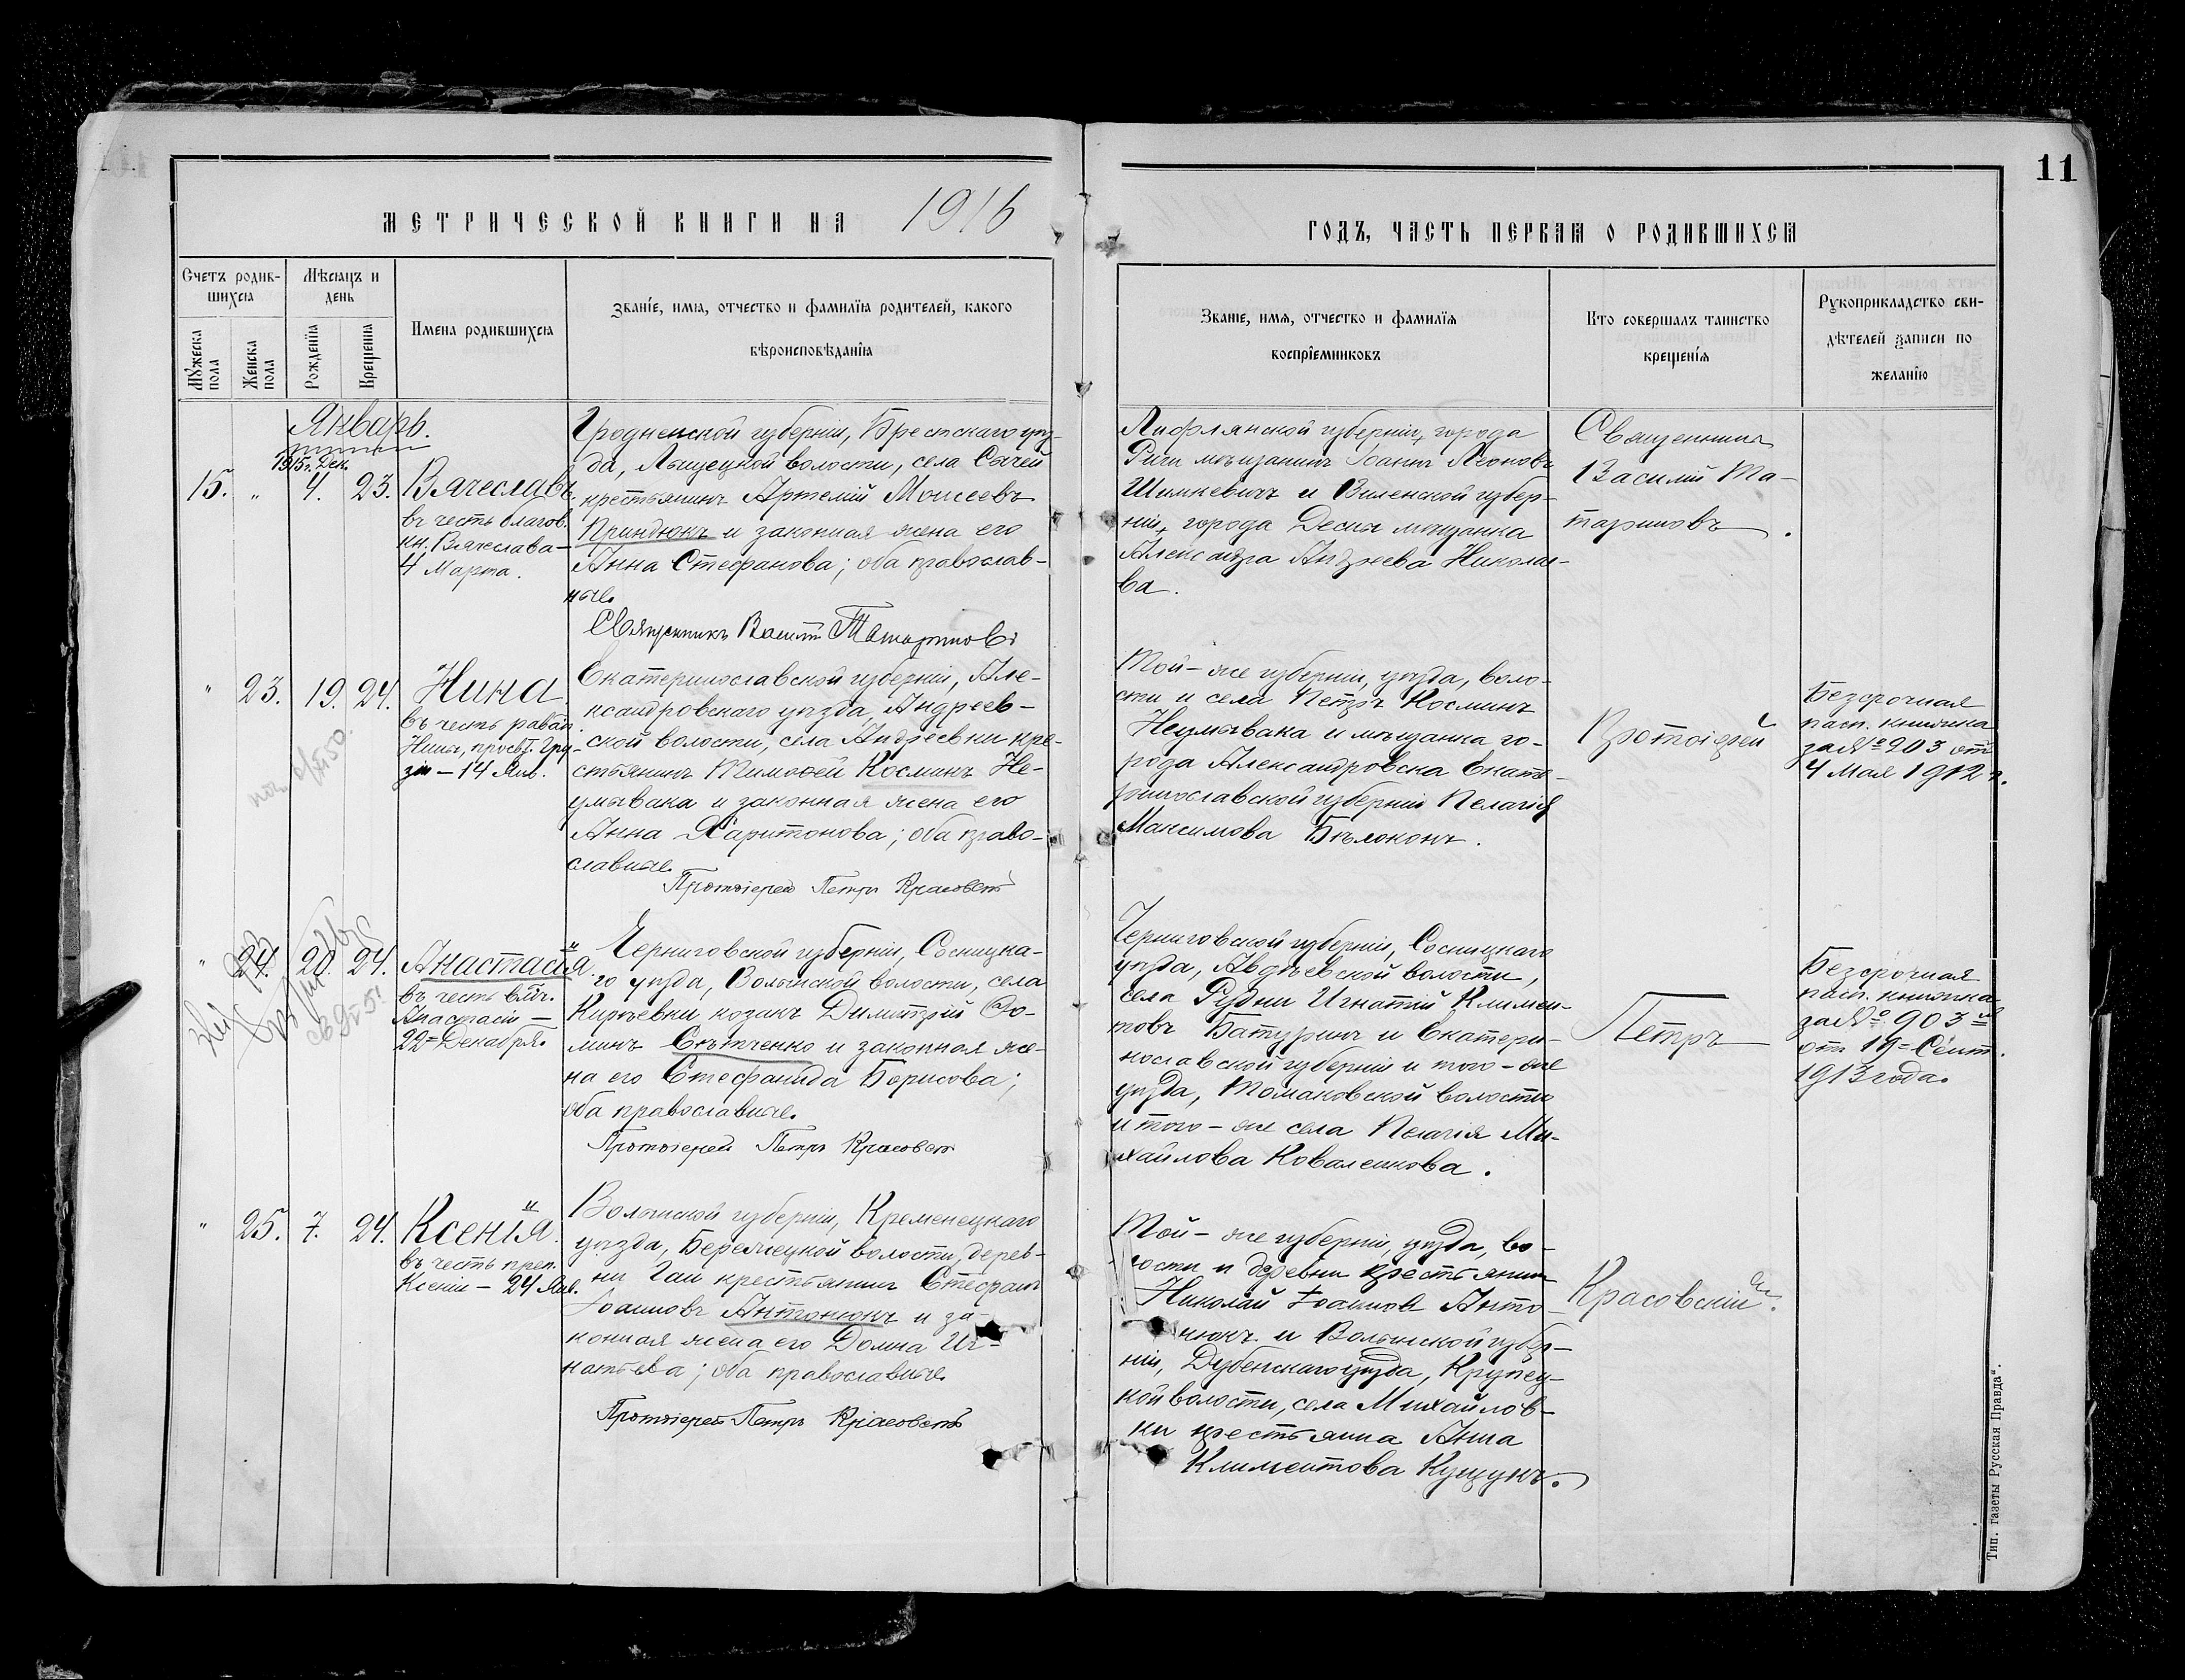 11
МЕТРИЧЕСКОЙ КНИГИ НА 1916
ГОДЪ, ЧАСТЬ ПЕРВАЯ О РОДИВШИХСЯ
Счетъ родив-
шихся
Мѣсяцъ и
день
Мужеска
пола
Женска
пола
Рожденія
Крещенія
Имена родившихся
Званіе, имя, отчество и фамилія родителей, какого
вѣроисповѣданія
Званіе, имя, отчество и фамилія
воспріемниковъ
Кто совершалъ таинство
крещенія
Рукоприкладство сви-
дѣтелей записи по
желанію
Январь.
1915 г. Дек.
15. " 4. 23. Вячеславъ,
въ честь благов.
кн. Вячеслава –
4 Марта.
Гродненской губерніи, Брестскаго уѣз-
да, Лыщецкой волости, села Сычей
крестьянинъ Артемій Моисеевъ
Приндюкъ и законная жена его
Анна Стефанова; оба православ-
ные.
Священникъ Василій Татариновъ
Лифлянской губерніи, города
Риги мѣщанинъ Іоаннъ Леоновъ
Шимкевичъ и Виленской губер-
ніи, города Десны мѣщанка
Александра Андреева Николае-
ва.
Священникъ
Василій Та-
тариновъ.
" 23. 19. 24. Нина
въ честь равноап.
Нины, просвѣт. Гру-
зіи – 14 Янв.
Екатеринославской губерніи, Але-
ксандровскаго уѣзда, Андреев-
ской волости, села Андреевки кре-
стьянинъ Тимофей Косминъ Не-
умывака и законная жена его
Анна Харитонова; оба право-
славные.
Протоіерей Петръ Красовскій
Той-же губерніи, уѣзда, воло-
сти и села Петръ Косминъ
Неумывака и мѣщанка го-
рода Александровска Екате-
ринославской губерніи Пелагія
Максимова Бѣлоконь.
Протоіерей
Безсрочная
пасп. книжка
за № 203 отъ
4 Мая 1912 г.
" 24. 20. 24. Анастасія.
въ честь влмч.
Анастасіи –
22 Декабря.
Черниговской губерніи, Сосницка-
го уѣзда, Волынской волости, села
Кирѣевки козакъ Димитрій Фо-
минъ Свѣтченко и законная же-
на его Стефанида Борисова;
оба православные.
Протоіерей Петръ Красовскій
Черниговской губерніи, Сосницкаго
уѣзда, Авдѣевской волости,
села Рудни Игнатій Климен-
товъ Батуринъ и Екатери-
нославской губерніи и того-же
уѣзда, Томаковской волости
и того-же села Пелагія Ми-
хайлова Коваленкова.
Петръ
Безсрочная
пасп. книжка
за № 903
отъ 19 Сент.
1913 года.
" 25. 7. 24. Ксенія.
въ честь преп.
Ксеніи – 24 Янв.
Волынской губерніи, Кременецкаго
уѣзда, Бережецкой волости, дерев-
ни Гаи крестьянинъ Стефанъ
Іоанновъ Антонюкъ и за-
конная жена его Домна Иг-
натьева; оба православные.
Протоіерей Петръ Красовскій
Той-же губерніи, уѣзда, во-
лости и деревни крестьянинъ
Николай Іоанновъ Анто-
нюкъ и Волынской губер-
ніи, Дубенскаго уѣзда, Крупец-
кой волости, села Михайлов-
ки крестьянка Анна
Климентова Кущукъ.
Красовскій.
Тип. газеты „Русская Правда“.